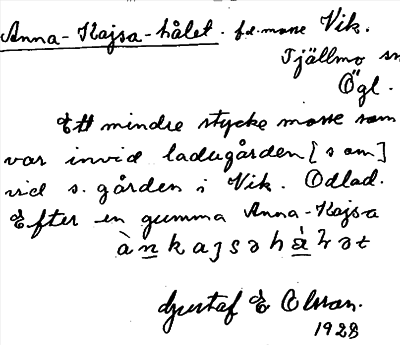 Anna-Kajsa-hålet. f.d. mosse Vik.
Tjällmo sn
Ögl.
Ett mindre stycke mosse som
var invid ladugården [som]
vid s. gården i Vik. Odlad.
Efter en gumma Anna-Kajsa
Gustaf E Olsson.
1928